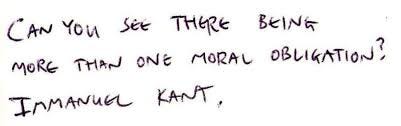 CAN YOU SEE THERE BEING
MORE THAN ONE MORAL OBLIGATION?
IMMANUEL KANT.